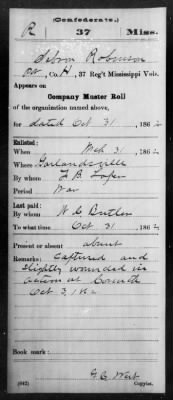 (Confederate.)
R 37 Miss.
Robinson
Co. H, 37 Reg't Mississippi Vols.
Appears on
Company Muster Roll
of the organization named above,
for dated Oct 31, 186
Enlisted:
When Mch 31, 186
Where Garlandsville
By whom F B Loper
Period War
Last paid:
By whom W. C. Butler
To what time Oct 31, 186
Present or absent absent
Remarks: Captured and
slightly wounded in
action at Corinth
Oct 3, 1862
Book mark:
G. C. West
(642) Copyist.